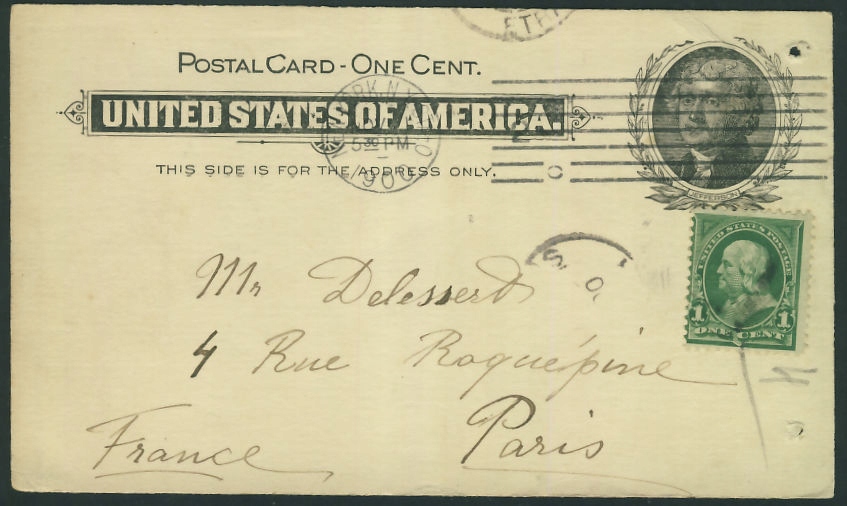 POSTAL CARD - ONE CENT.
UNITED STATES OF AMERICA.
5 30 PM
1900
THIS SIDE IS FOR THE ADDRESS ONLY.
JEFFERSON
UNITED STATES POSTAGE
1 1
ONE CENT
Mr Delessert
4 Rue Roquépine
Paris
France